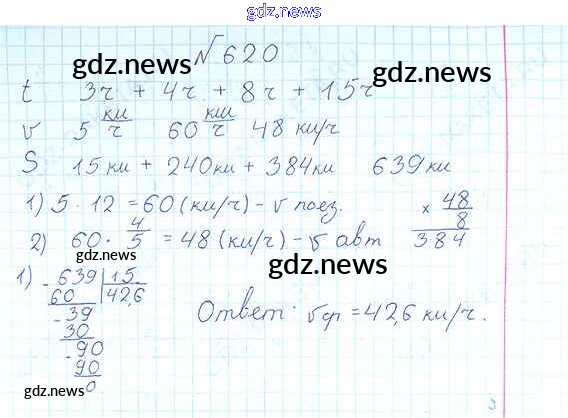 gdz.news
№620
gdz.news gdz.news
t 3ч + 4ч + 8ч + 15ч
v 5 км/ч 60 км/ч 48 км/ч
S 15км + 240км + 384км 639км
1) 5 · 12 = 60 (км/ч) - v поез.
2) 60 · 4/5 = 48 (км/ч) - v авт
× 48
8
384
gdz.news
1) - 639 | 15
60 42,6
- 39
30
- 90
90
0
Ответ: vср = 42,6 км/ч.
gdz.news
gdz.news